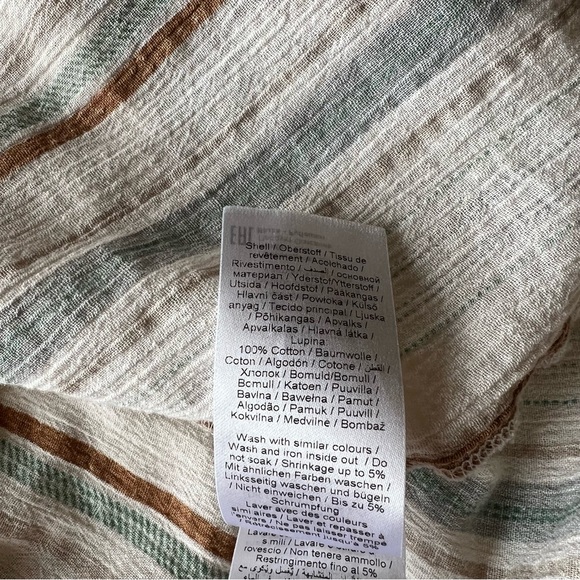 EAC
Shell / Oberstoff / Tissu de
revêtement / Acolchado /
Rivestimento / الصدف / основной
материал / Yderstof/Ytterstoff /
Utsida / Hoofdstof / Pääkangas /
Hlavní část / Powłoka / Külső
anyag / Tecido principal / Ljuska
/ Põhikangas / Apvalks /
Apvalkalas / Hlavná látka /
Lupina
100% Cotton / Baumwolle /
Coton / Algodón / Cotone / القطن /
Хлопок / Bomuld/Bomull /
Bomull / Katoen / Puuvilla /
Bavlna / Bawełna / Pamut /
Algodão / Pamuk / Puuvill /
Kokvilna / Medvilnė / Bombaž
Wash with similar colours /
Wash and iron inside out / Do
not soak / Shrinkage up to 5%
Mit ähnlichen Farben waschen /
Linksseitig waschen und bügeln
/ Nicht einweichen / Bis zu 5%
Schrumpfung
Laver avec des couleurs
similaires / Laver et repasser à
l'envers / Ne pas laisser trempé
/ Rétrécissement jusqu'à 5%
Lavare
rovescio / Non tenere ammollo /
Restringimento fino al 5%